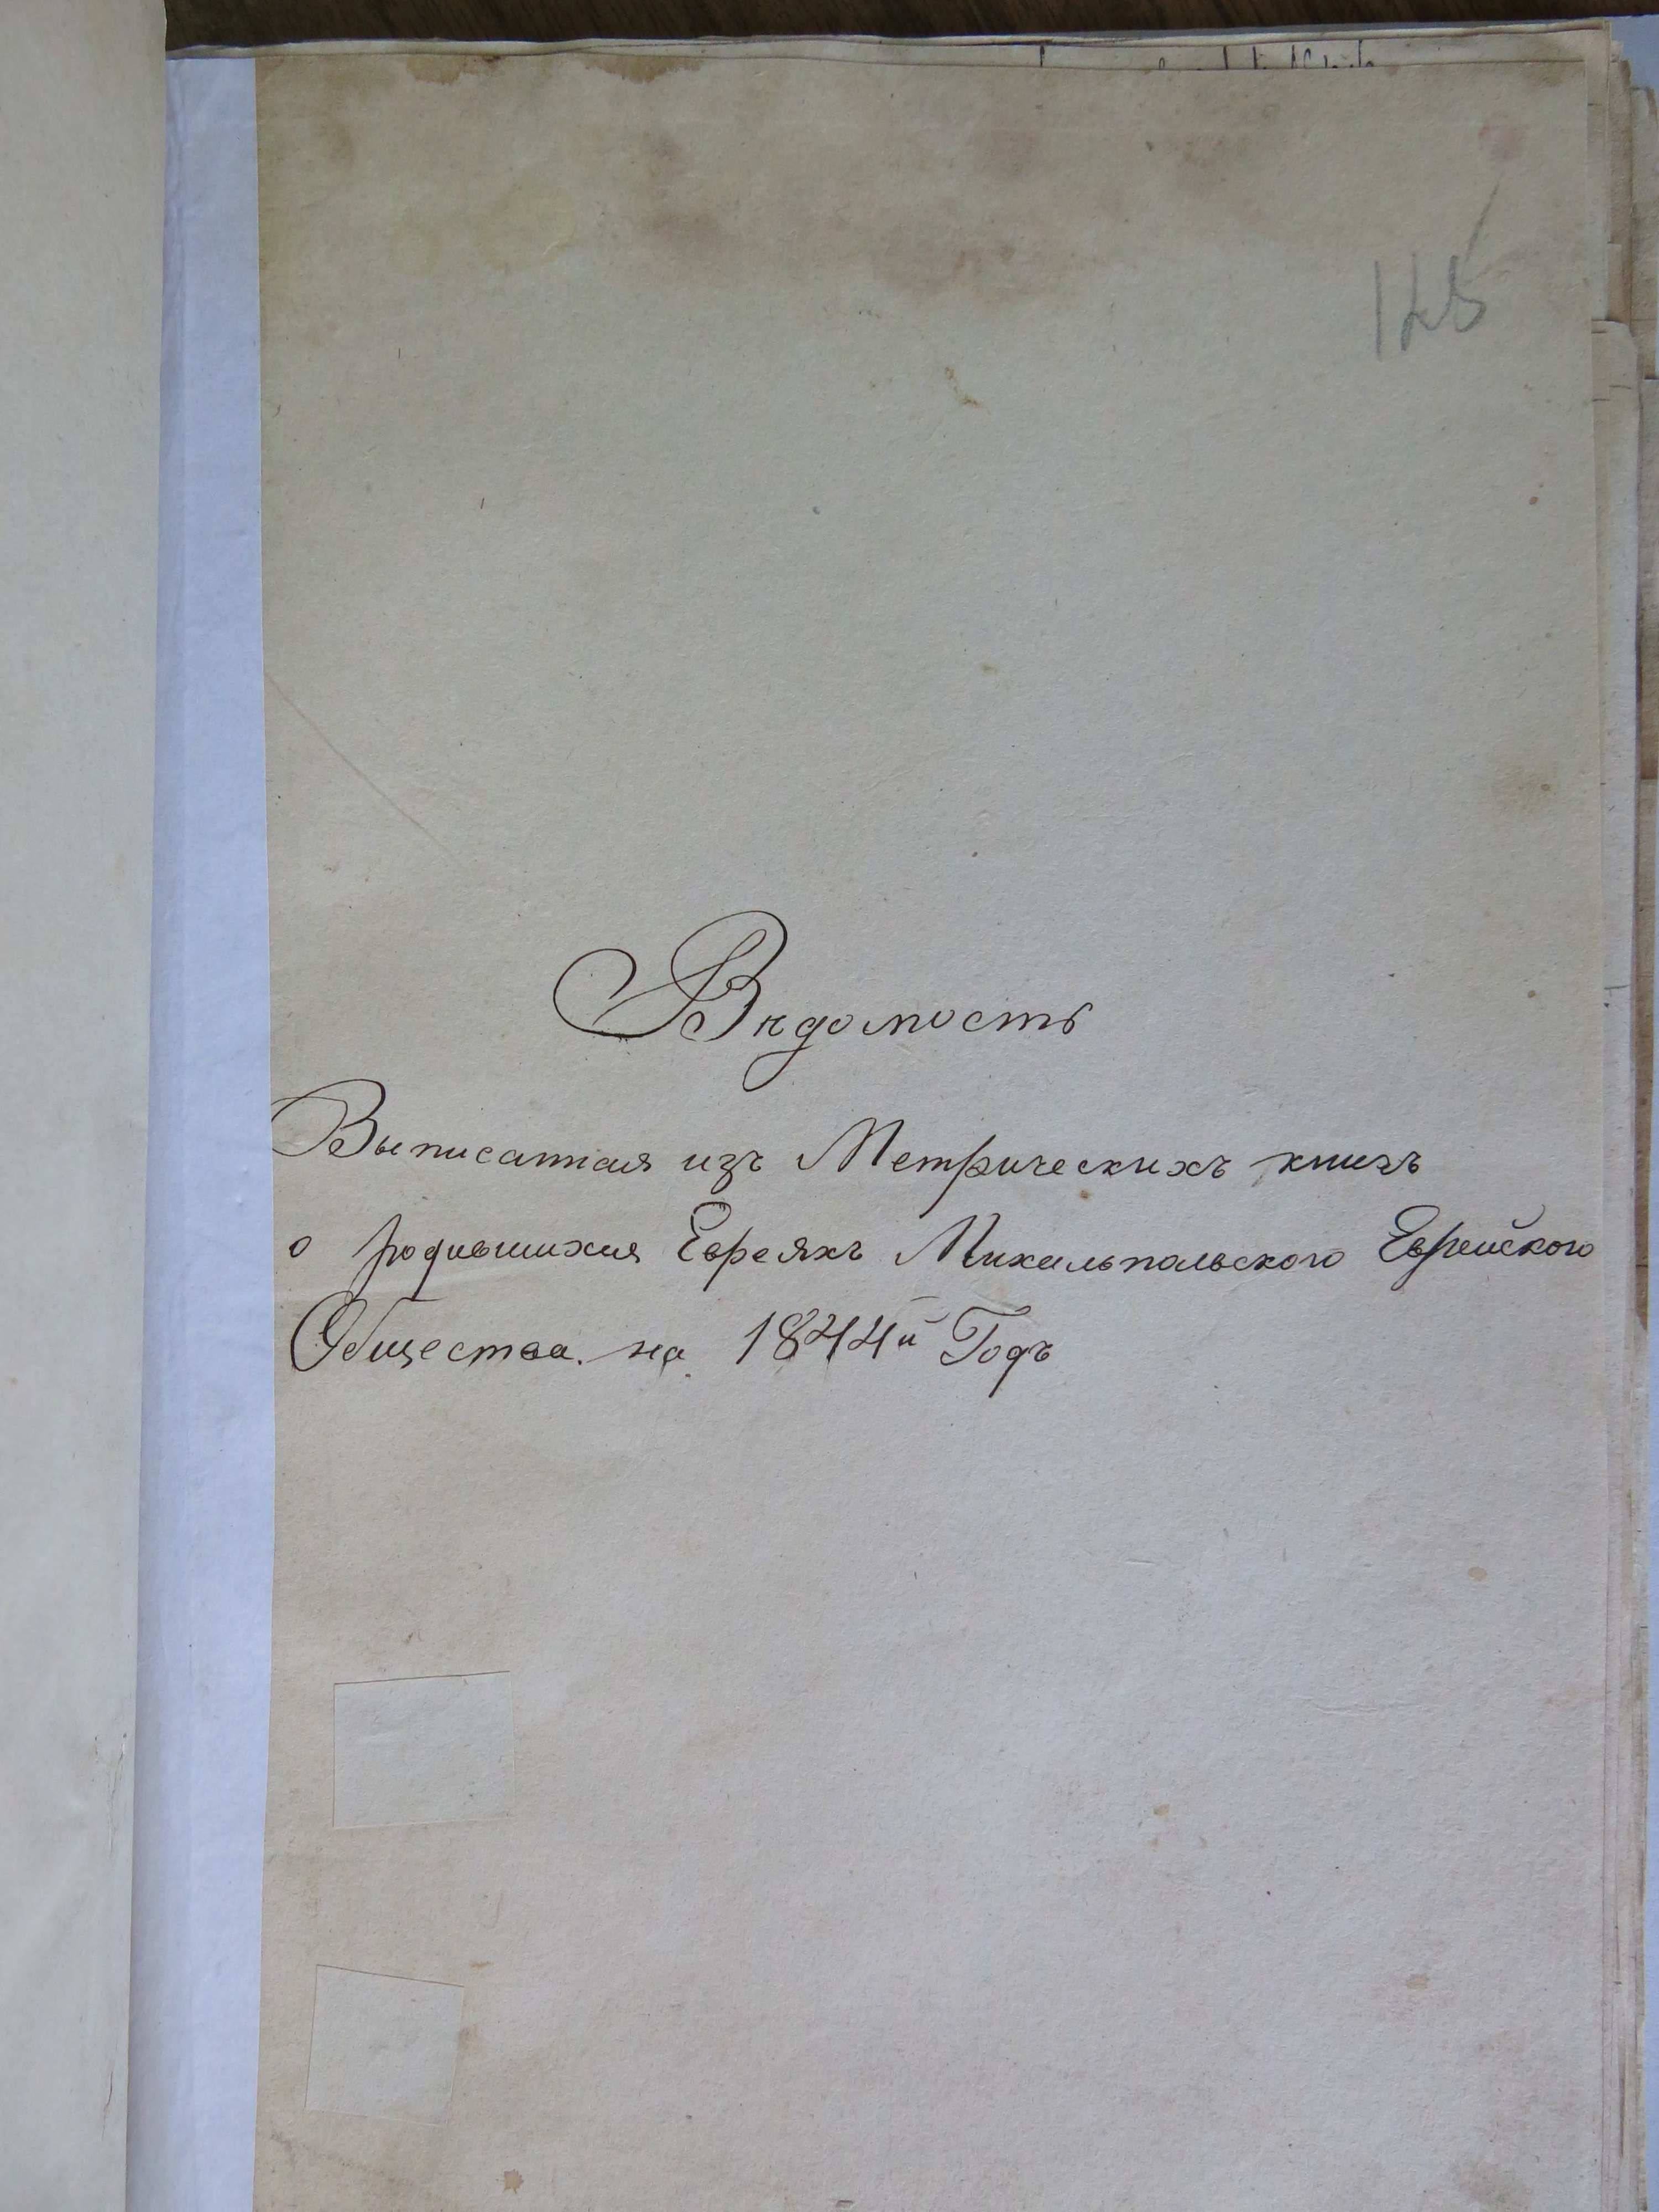 Вѣдомость
Выписанная изъ Метрическихъ книгъ
о родившихся Евреяхъ Михальпольского Еврейского
Общества. на 1844й Годъ